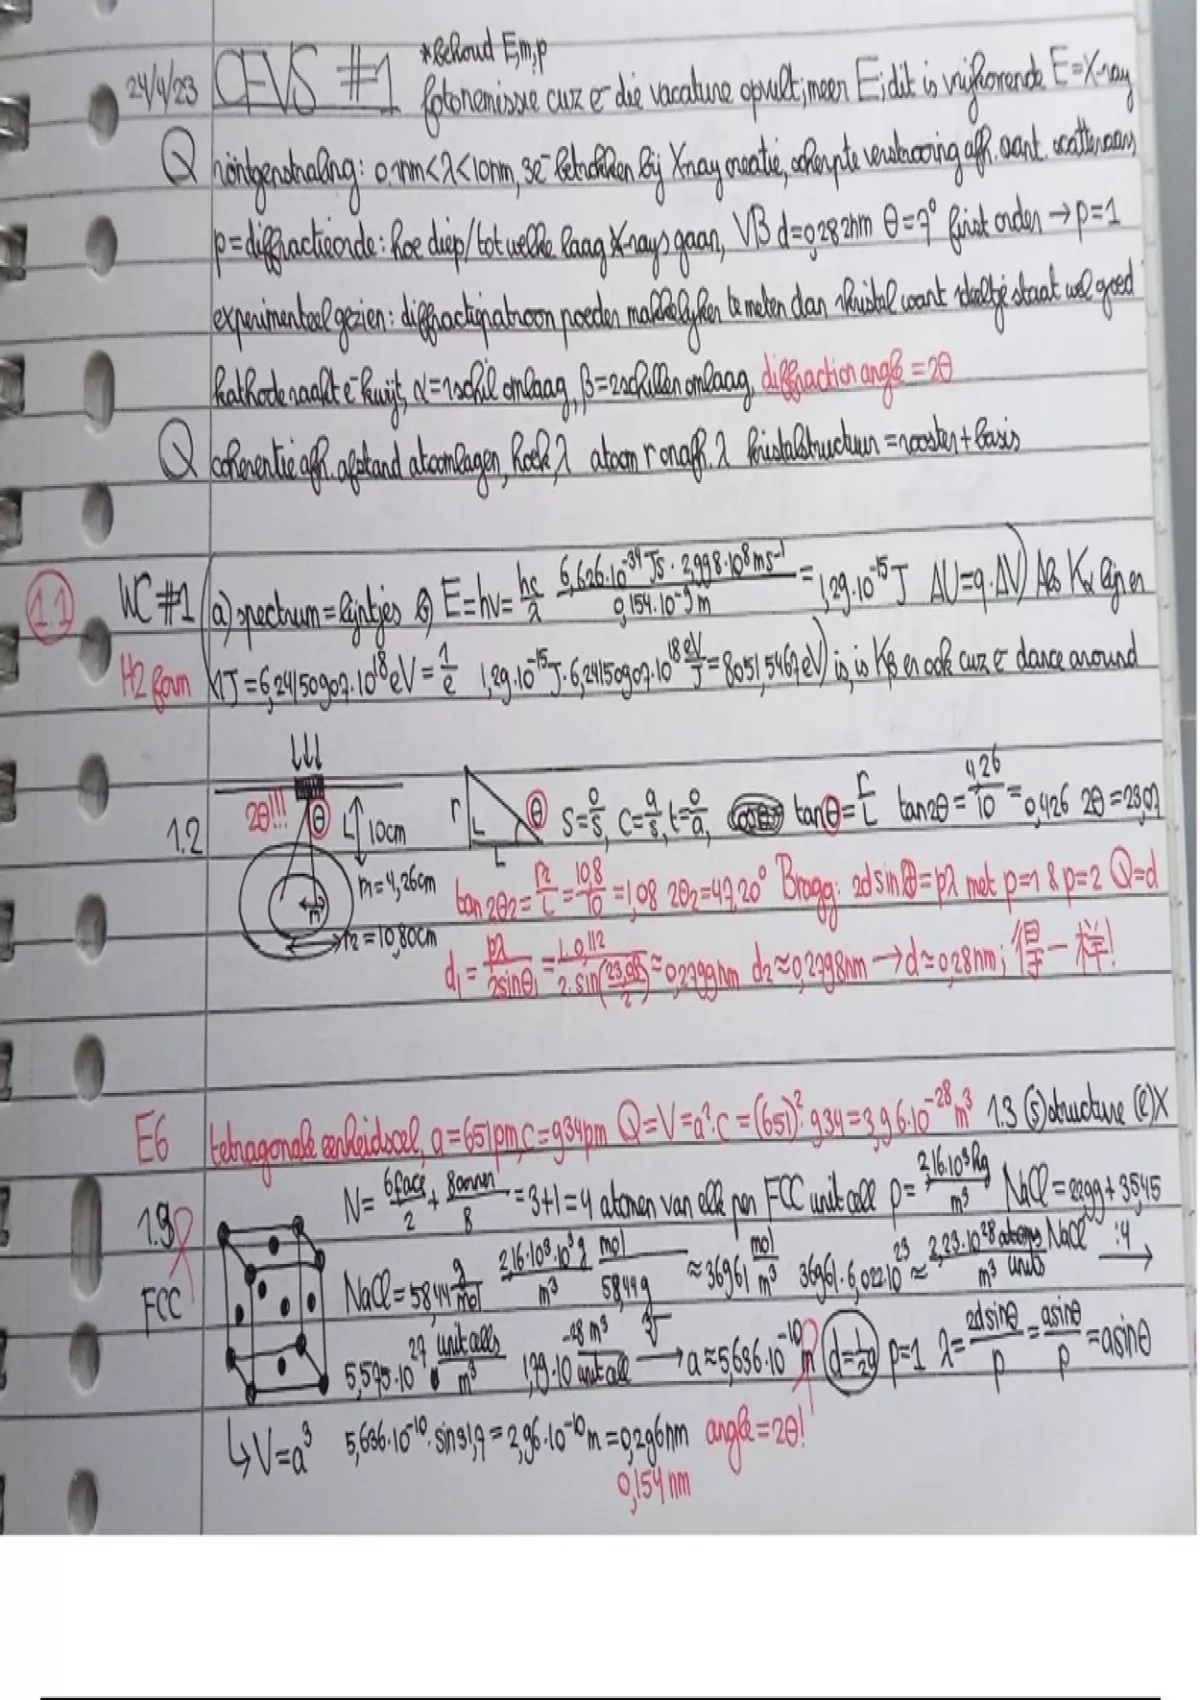 24/4/23 CEVS #1 *Behoud E,m,p
fotonemissie cuz e⁻ die vacature opvult; meer E; dit is vrijkomende E = X-ray
Q röntgenstraling: 0.1nm<λ<10nm, 3e⁻ betrokken bij X-ray creatie, scherpte verstrooiing afh. aant. scatteraars
p=diffractieorde: hoe diep/tot welke laag X-rays gaan, VB d=0,282nm θ=7° first order → p=1
experimenteel gezien: diffractiepatroon poeder makkelijker te meten dan kristal want deeltje staat wel goed
kathode raakt e⁻ kwijt, α=1 schil omlaag, β=2 schillen omlaag, diffraction angle = 2θ
Q coherentie afh. afstand atoomlagen, hoek, λ atoom r onafh. λ kristalstructuur = rooster + basis
1.1 WC #1 (a) spectrum = lijntjes b) E=hν= hc/λ 6,626·10⁻³⁴Js · 2,998·10⁸ms⁻¹ / 0,154·10⁻⁹m = 1,29·10⁻¹⁵J ΔU=q·ΔV) Als Kα lijn er
H2 form 1J=6,24150907·10¹⁸eV = 1/e 1,29·10⁻¹⁵J·6,24150907·10¹⁸ eV/J = 8051,5467eV) is, is Kβ er ook cuz e⁻ dance around
1.2 2θ!!! θ L 10cm r L θ s=o/s, c=a/s, t=o/a, tanθ=r/L tan2θ= 4,26/10 = 0,426 2θ=23,07
r1=4,26cm
r2=10,80cm
tan2θ2= r2/L = 10,8/10 = 1,08 2θ2=47,20° Bragg: 2d sinθ=pλ met p=1 & p=2 Q=d
d₁= pλ/2sinθ₁ = 1·0,112/2·sin(23,08/2) ≈ 0,2799nm d₂≈0,2798nm → d≈0,28nm; 得一样!
E6 tetragonale eenheidscel, a=651pm, c=934pm Q=V=a²·c=(651)²·934=3,96·10⁻²⁸m³ 1.3 (s)structure (e)X
1.3 N= 6 face/2 + 8 corner/8 = 3+1=4 atomen van elk per FCC unit cell ρ= 2,16·10³kg/m³ NaCl=22,99+35,45
FCC NaCl=58,44 g/mol 2,16·10³·10³g/m³ mol/58,44g ≈36961 mol/m³ 36961·6,022·10²³≈ 2,23·10²⁸ atoms NaCl units/m³ :4 →
5,575·10²⁷ unit cells/m³ 1,79·10⁻²⁸ m³/unit cell → a≈5,636·10⁻¹⁰m (d=½a) p=1 λ= 2d sinθ/p = a sinθ/p = a sinθ
↳V=a³ 5,636·10⁻¹⁰·sin31,7=2,96·10⁻¹⁰m=0,296nm angle=2θ!
0,154nm